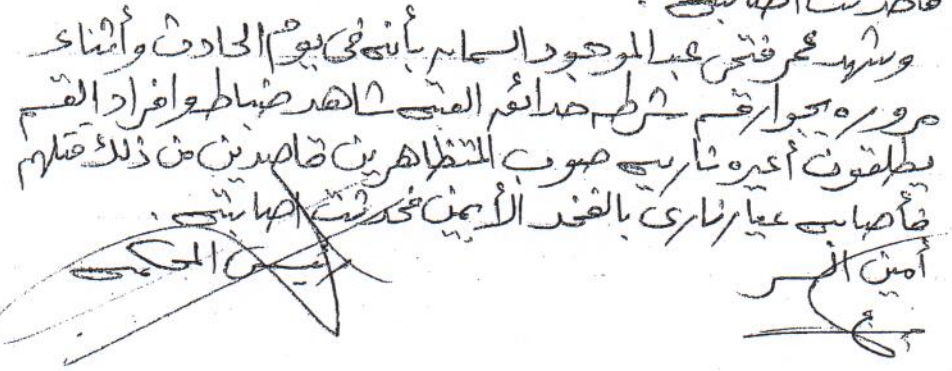 فحدثت اصابته .
وشهد عمر فتحى عبد الموجود السمان بأنه فى يوم الحادث وأثناء
مروره بجوار قسم شرطه حدائق القبه شاهد ضباط وافراد القسم
يطلقون أعيره ناريه صوب المتظاهرين قاصدين من ذلك قتلهم
فأصابه عيار نارى بالفخذ الأيمن فحدثت اصابته .
أمين السر
رئيس المحكمه